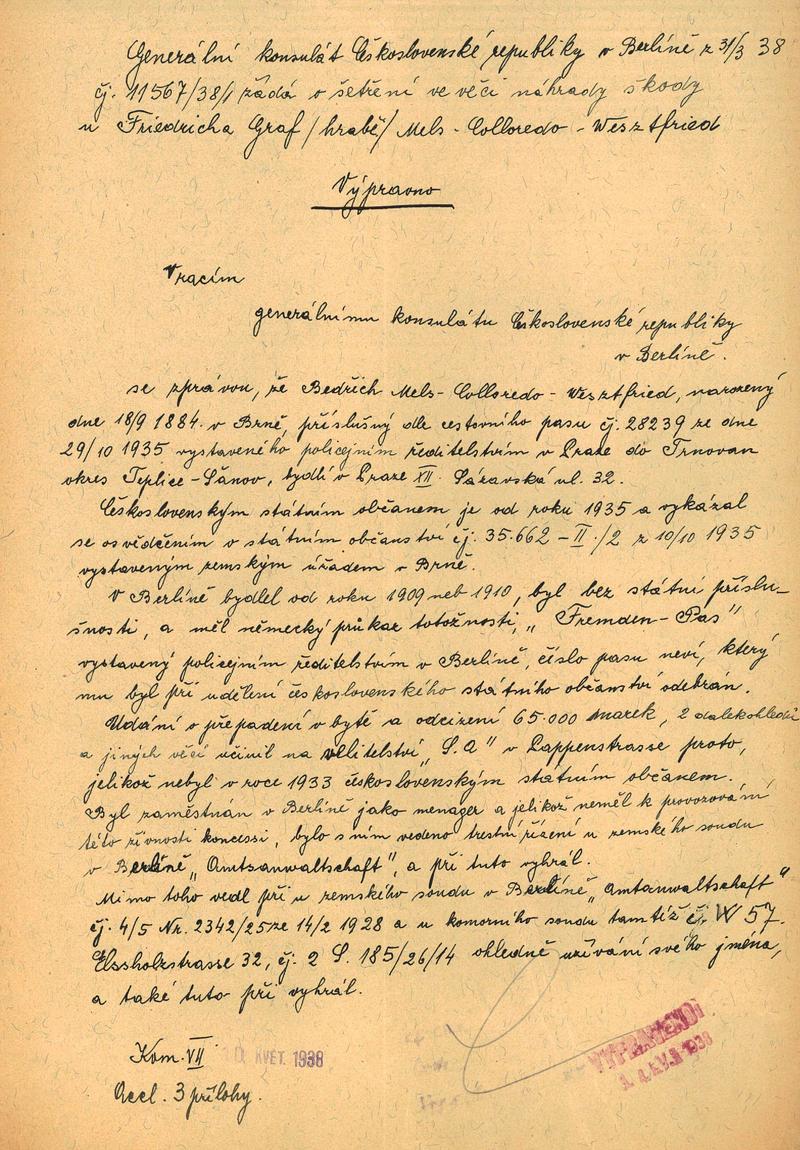 Generální konsulát Československé republiky v Berlíně z 31/3 38
čj. 11567/38/1 žádá o šetření ve věci náhrady škody
u Friedricha Graf /hrabě/ Mels-Colloredo-Wesztfried
Výpravno
Vracím
generálnímu konsulátu Československé republiky
v Berlíně.
se zprávou, že Bedřich Mels-Colloredo-Wesztfried, narozený
dne 18/9 1884. v Brně, příslušný dle cestovního pasu čj. 28239 ze dne
29/10 1935 vystaveného policejním ředitelstvím v Praze do Trnovan
okres Teplice-Šanov, bydlí v Praze XII. Sázavská ul. 32.
Československým státním občanem je od roku 1935 a vykázal
se osvědčením o státním občanství čj. 35.662-II./2 z 10/10 1935
vystaveným zemským úřadem v Brně.
V Berlíně bydlel od roku 1909 neb 1910, byl bez státní příslu-
šnosti, a měl německý průkaz totožnosti, „Fremden-Pas"
vystavený policejním ředitelstvím v Berlíně, číslo pasu neví, který
mu byl při udělení československého státního občanství odebrán.
Udání o přepadení v bytě a odcizení 65.000 marek, 2 dalekohledů
a jiných věcí učinil na velitelství „S.A" v Pappenstrasse proto,
jelikož nebyl v roce 1933 československým státním občanem.
Byl zaměstnán v Berlíně jako menager a jelikož neměl k provozování
této živnosti koncessi, bylo s ním vedeno trestní řízení u zemského soudu
v Berlíně „Amtsanwaltschaft", a při tuto vyhrál.
Mimo toho vedl při u zemského soudu v Berlíně „Amtsanwaltschaft"
čj. 4/5 Nr. 2342/25 ze 14/2 1928 a u komorního soudu tamtéž čj. W 57.
Elssholzstrasse 32, čj. 2 S. 185/26/14 ohledně užívání svého jména,
a také tuto při vyhrál.
Kom. VII
KVĚT. 1938
VYPRAVENO:
Accl. 3 přílohy.